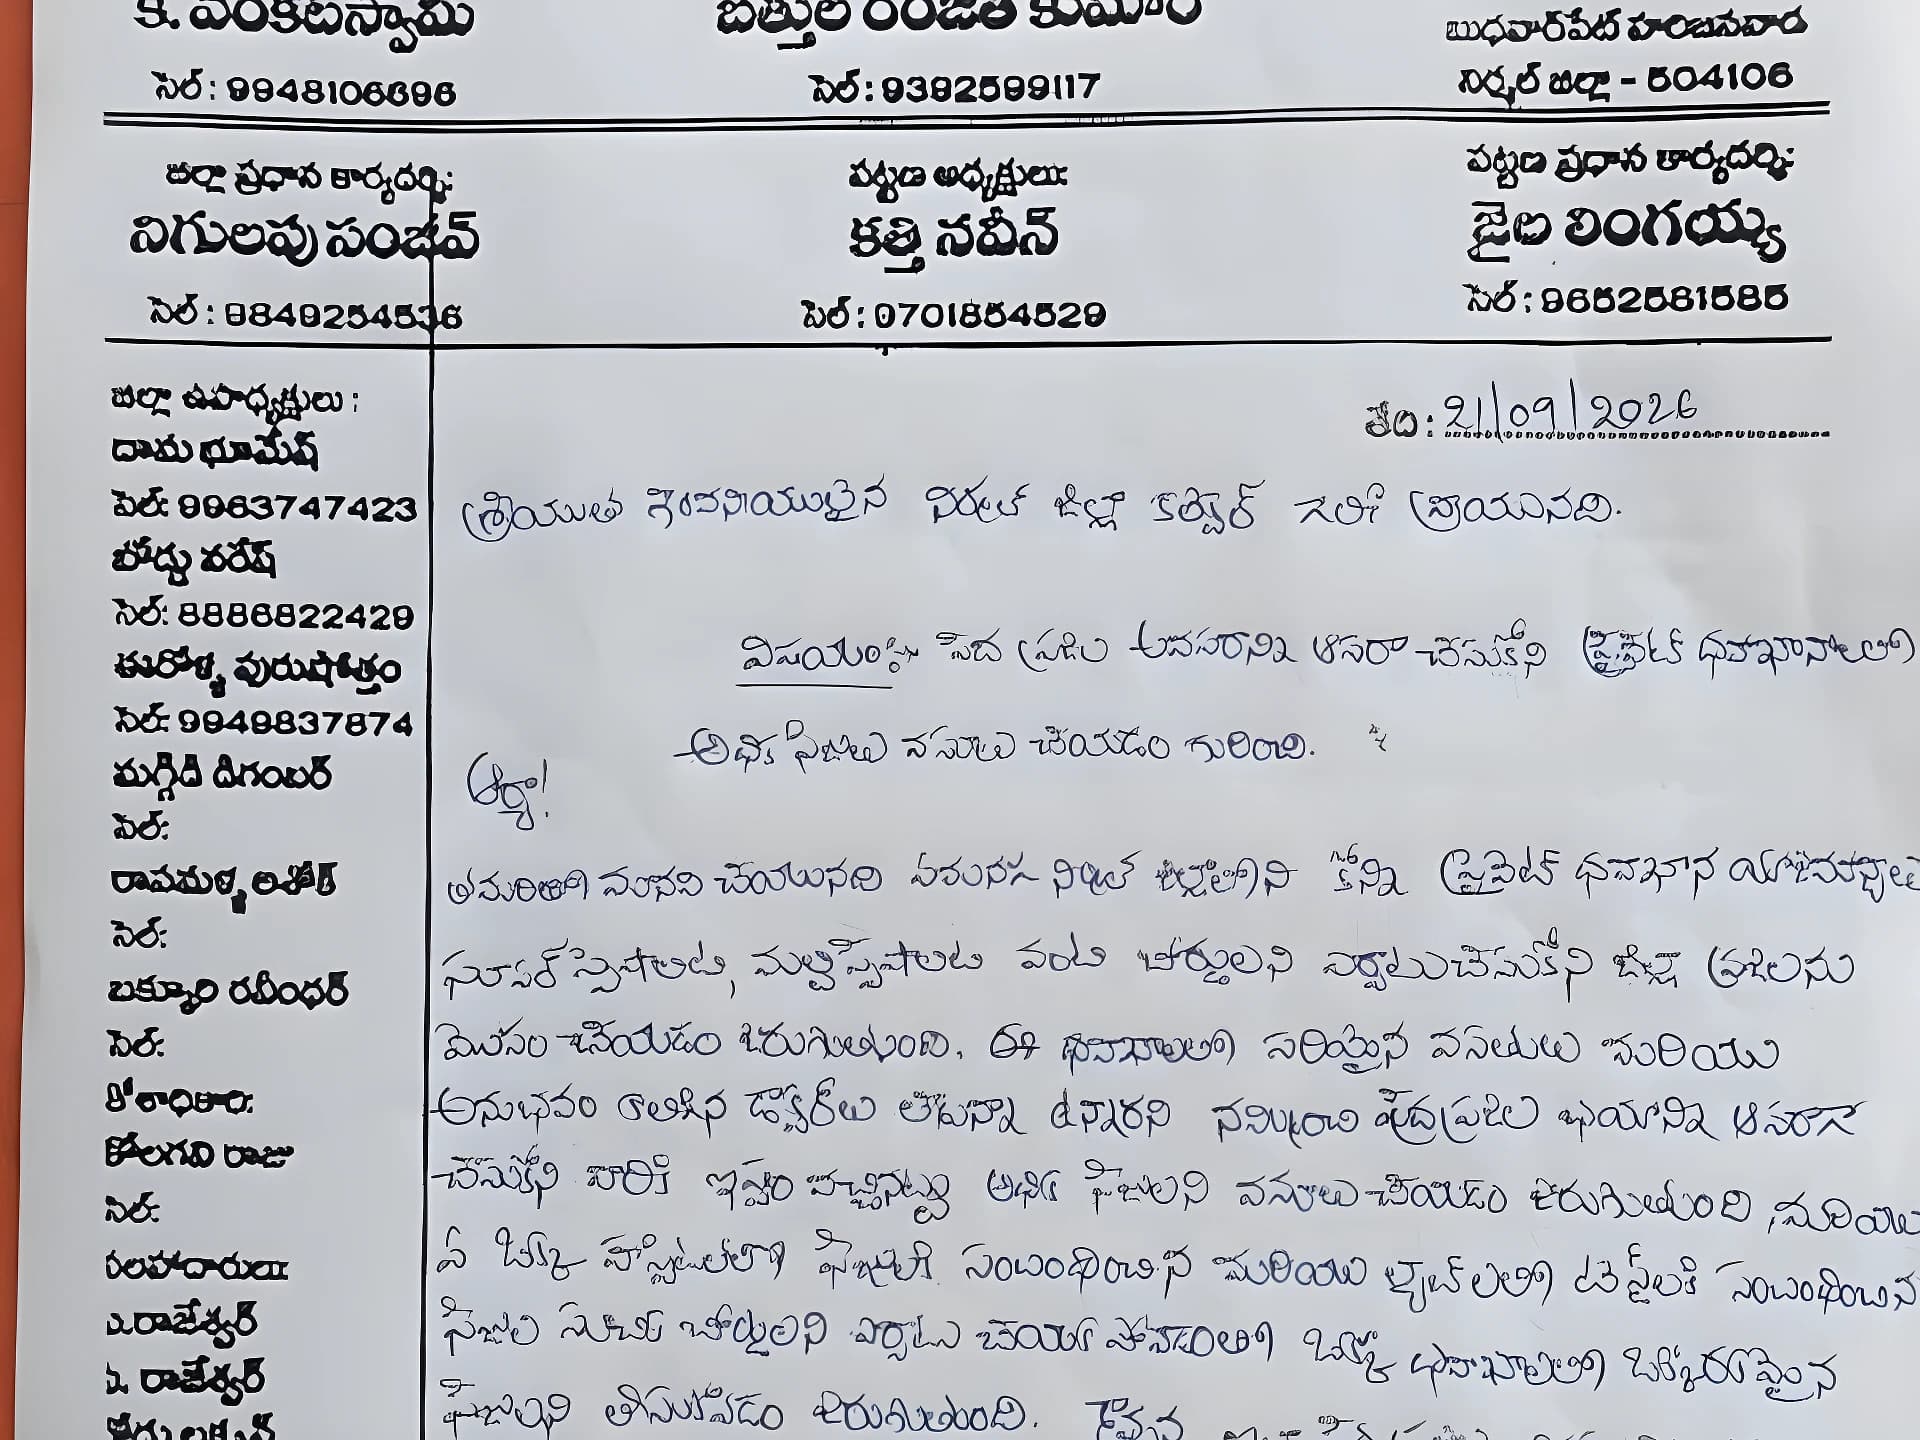 కె. వెంకటస్వామి
బత్తుల రంజిత్ కుమార్
బుధవార్‌పేట్ హరిజనవాడ
సెల్ : 9948106696
సెల్ : 9392599117
నిర్మల్ జిల్లా - 504106
జిల్లా ప్రధాన కార్యదర్శి:
పట్టణ అధ్యక్షులు:
పట్టణ ప్రధాన కార్యదర్శి:
నిగులపు సంజీవ్
కత్తి నవీన్
లింగయ్య
సెల్ : 9849254536
సెల్ : 9701854529
సెల్ : 9652561585
జిల్లా ఉపాధ్యక్షులు :
తేది : 21/09/2026
భూమేష్
సెల్: 9963747423
శ్రీయుత గౌరవనీయులైన నిర్మల్ జిల్లా కలెక్టర్ గారికి వ్రాయునది.
బొడ్డు నరేష్
సెల్: 8886822429
విషయం: పేద ప్రజల అవసరాన్ని ఆసరా చేసుకోని ప్రైవేట్ ధవాఖానాలలో
పురుషోత్తం
సెల్: 9949837874
అధిక ఫీజులు వసూలు చేయడం గురించి.
మగ్గిడి దిగంబర్
ఆర్యా!
సెల్:
అశోక్
తమరితో మనవి చేయునది ఏమనగా నిర్మల్ జిల్లాలోని కొన్ని ప్రైవేట్ ధవాఖాన
సెల్:
సూపర్ స్పెషాలిటి, మల్టిస్పెషాలిటి వంటి బోర్డులని ఏర్పాటుచేసుకోని జిల్లా ప్రజలను
బక్కూరి రవీందర్
సెల్:
మోసం చేయడం జరుగుతుంది. ఈ ధవాఖానాలలో సరియైన వసతులు మరియు
కోశాధికారి:
అనుభవం కాలిగిన డాక్టర్‌లు లేకున్నా ఉన్నారని నమ్మించి పేద ప్రజల భయాన్ని ఆసరాగా
కోలగని రాజు
చేసుకోని వారికి ఇష్టం వచ్చినట్టు అధిక ఫీజులని వసూలు చేయడం జరుగుతుంది, మరియు
సెల్:
ఏ ఒక్క హాస్పిటల్‌లలో ఫీజులకి సంబంధించిన మరియు ల్యాబ్‌లలో టెస్ట్‌లకి సంబంధించిన
సలహాదారులు
ఫీజుల సూచిక బోర్డులని ఏర్పాటు చేయక పోవడంతో ఒక్కో ధవాఖానాలలో ఒక్కోరకమైన
రాజేశ్వర్
రాజేశ్వర్
ఫీజులని తీసుకోవడం జరుగుతుంది. కావున